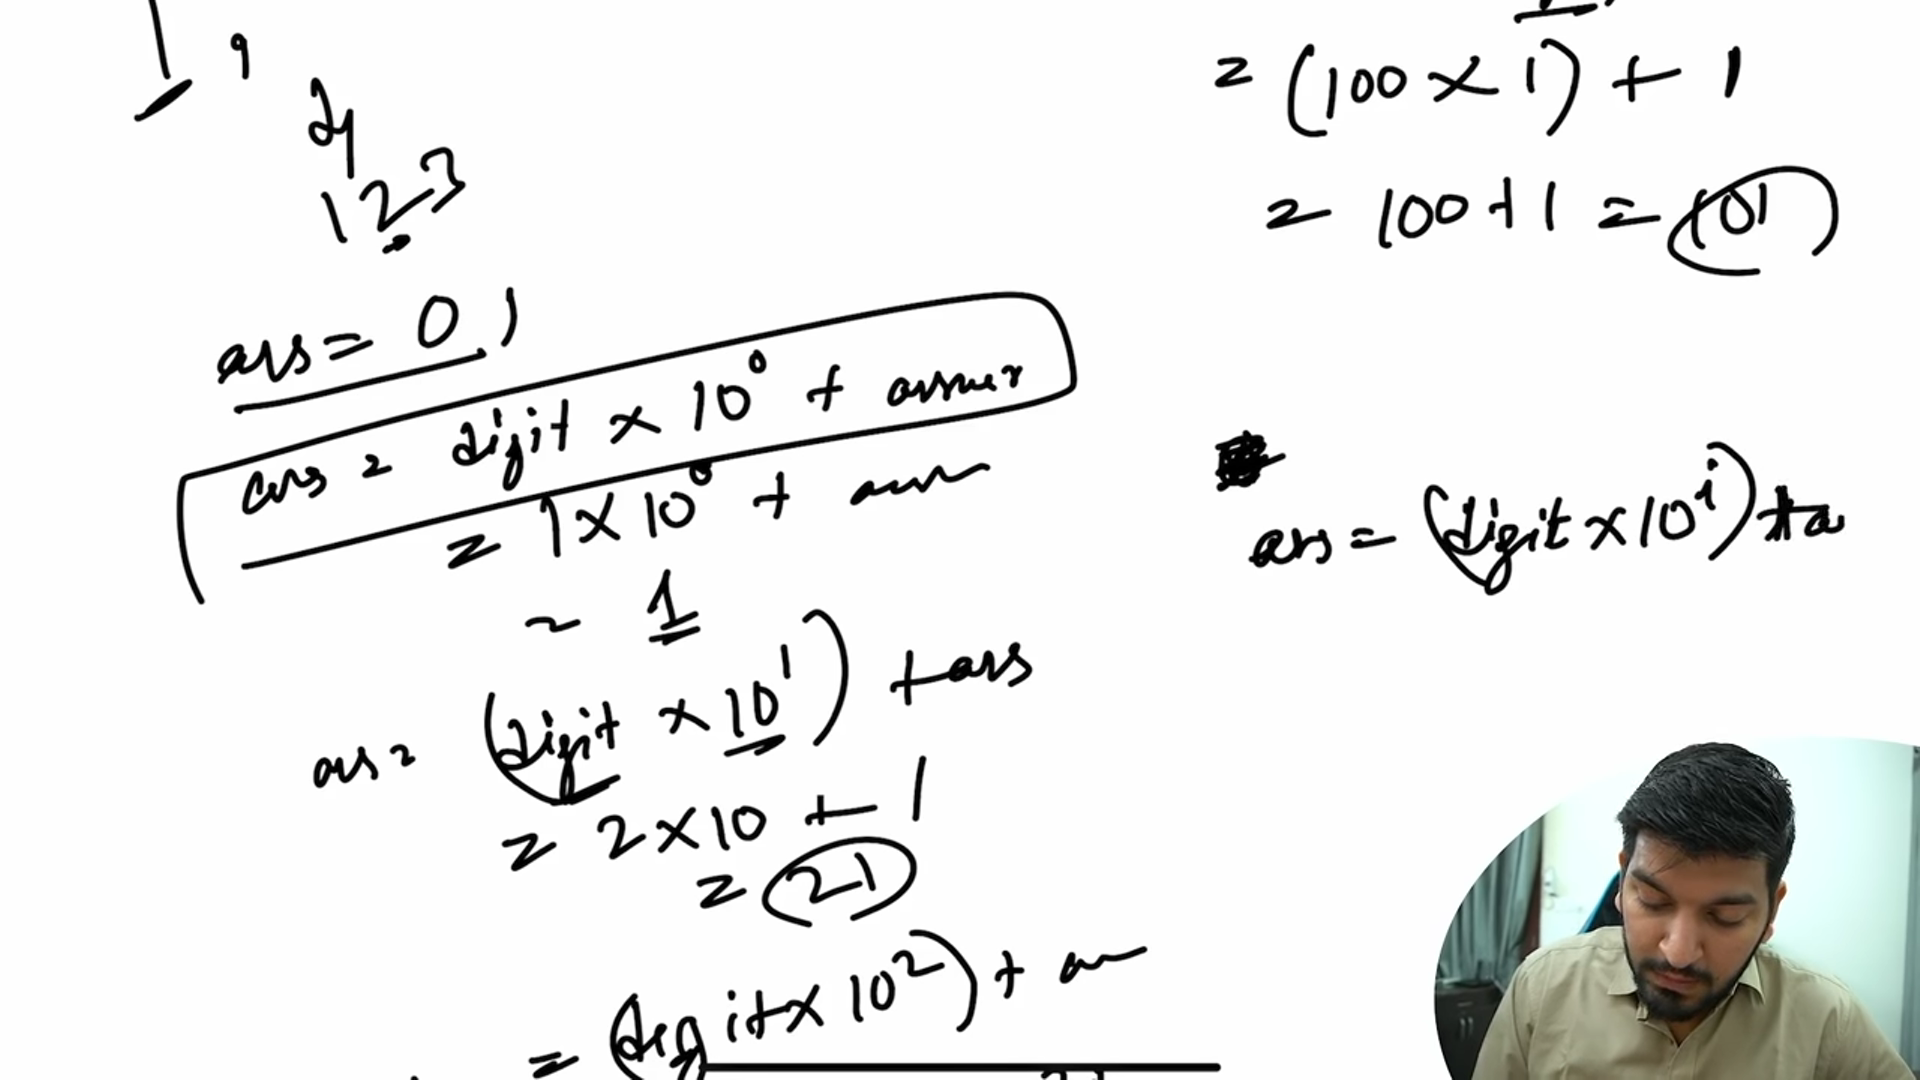 1,
24
123
ans = 0, 1
ans = digit × 10⁰ + answer
= 1 × 10⁰ + ans
= 1
ans = (digit × 10¹) + ans
= 2 × 10 + 1
= 21
= (digit × 10²) + an
= (100 × 1) + 1
= 100 + 1 = 101
ans = (digit × 10ⁱ) + a